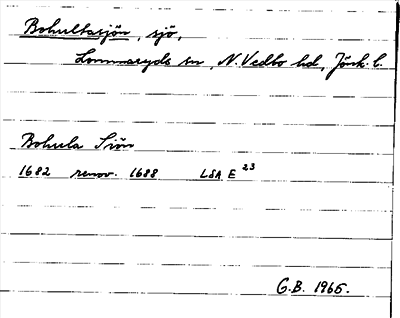 Bohultasjön, sjö,
Lommaryds sn, N. Vedbo hd, Jönk. l.
Bohula Siön
1682 renov. 1688 LSA E 23
G.B. 1965.